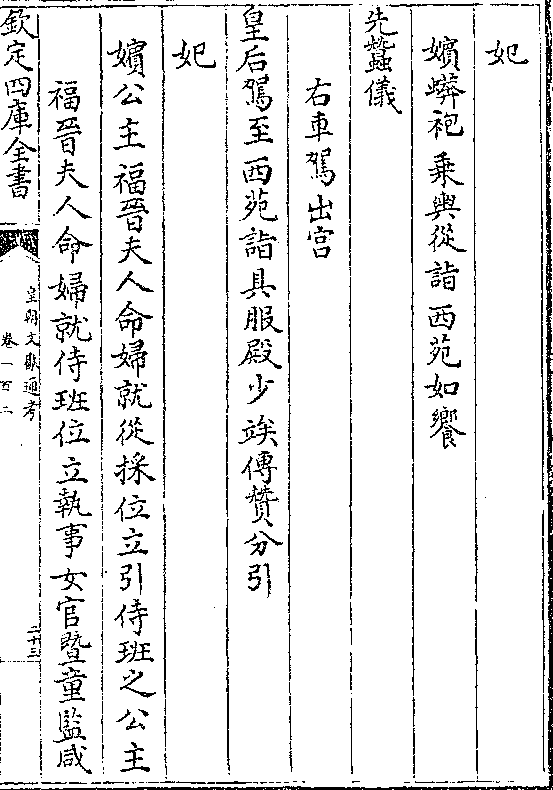 妃
嬪蟒袍乗輿從詣西苑如饗
先蠶儀
右車駕出宫
皇后駕至西苑詣具服殿少竢傳贊分引
妃
嬪公主福晉夫人命婦就從採位立引侍班之公主
福晉夫人命婦就侍班位立執事女官暨童監咸
欽定四庫全書
皇朝文獻通考
卷一百二
二十三